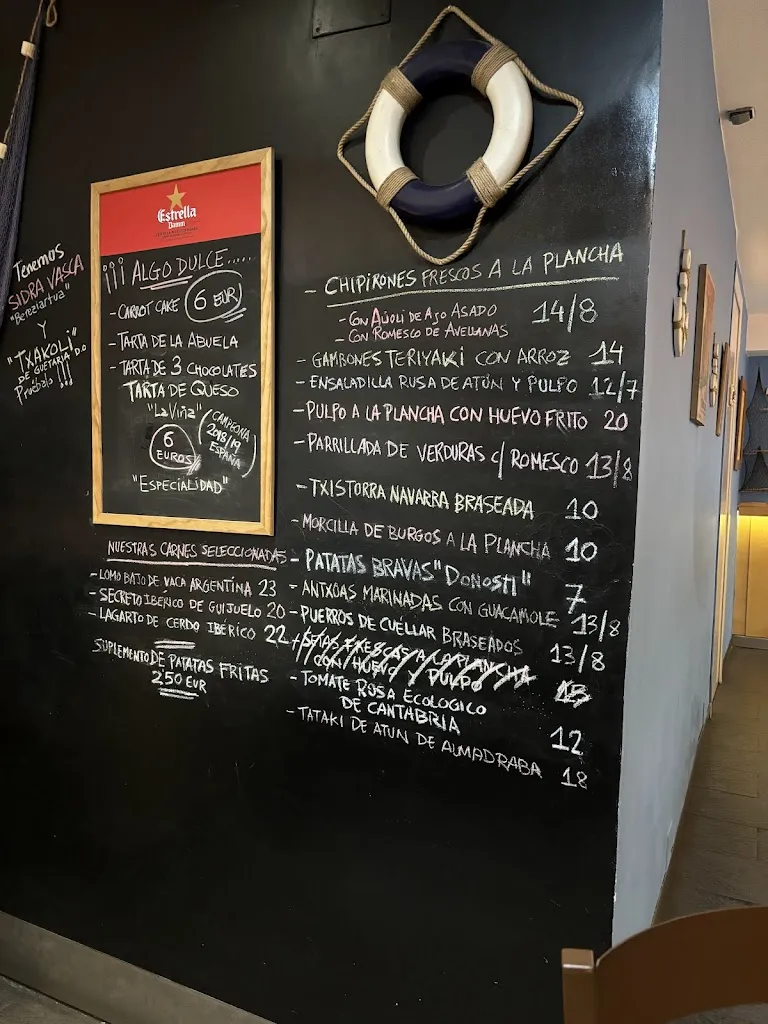 Tenemos
SIDRA VASCA
"Bereziartua"
Y
"TXAKOLI"
DE GUETARIA D.O
Pruébalo !!!
Estrella
Damm
¡¡¡ ALGO DULCE.....
- CARROT CAKE 6 EUR
- TARTA DE LA ABUELA
- TARTA DE 3 CHOCOLATES
TARTA DE QUESO
"LA VIÑA"
CAMPEONA
2018/19
ESPAÑA
6
EUROS
"ESPECIALIDAD"
NUESTRAS CARNES SELECCIONADAS
- LOMO BAJO DE VACA ARGENTINA 23
- SECRETO IBÉRICO DE GUIJUELO 20
- LAGARTO DE CERDO IBÉRICO 22
SUPLEMENTO DE PATATAS FRITAS
2'50 EUR
- CHIPIRONES FRESCOS A LA PLANCHA
- CON AJOLI DE AJO ASADO 14/8
- CON ROMESCO DE AVELLANAS
- GAMBONES TERIYAKI CON ARROZ 14
- ENSALADILLA RUSA DE ATÚN Y PULPO 12/7
- PULPO A LA PLANCHA CON HUEVO FRITO 20
- PARRILLADA DE VERDURAS C/ ROMESCO 13/8
- TXISTORRA NAVARRA BRASEADA 10
- MORCILLA DE BURGOS A LA PLANCHA 10
- PATATAS BRAVAS "DONOSTI" 7
- ANTXOAS MARINADAS CON GUACAMOLE 13/8
- PUERROS DE CUELLAR BRASEADOS 13/8
- SETAS FRESCAS A LA PLANCHA
CON HUEVO Y PULPO
- TOMATE ROSA ECOLOGICO
DE CANTABRIA 12
- TATAKI DE ATUN DE ALMADRABA 18